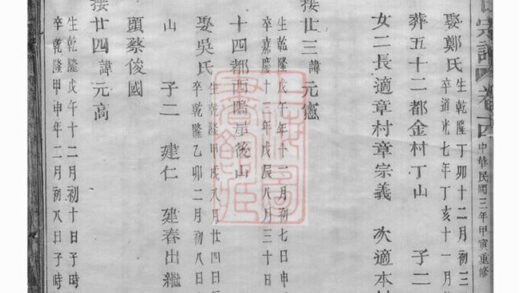 宗譜 卷十四 中華民國三年甲寅重修
娶鄭氏 生乾隆丁卯十二月初三
卒道光七年丁亥十一月
葬五十二都金村丁山 子二
女二長適章村章宗義 次適本村
接廿三諱元憲
生乾隆戊午年十二月初七日申
卒嘉慶十三年戊辰八月三十日
十四都南臨承後山
娶吳氏 生乾隆甲戌八月廿四日
卒乾隆乙卯二月初八日
山 子二 建仁 建春出繼
頭蔡俊國
接廿四諱元高
生乾隆戊午十二月初十日
卒乾隆甲申年二月初八日子時